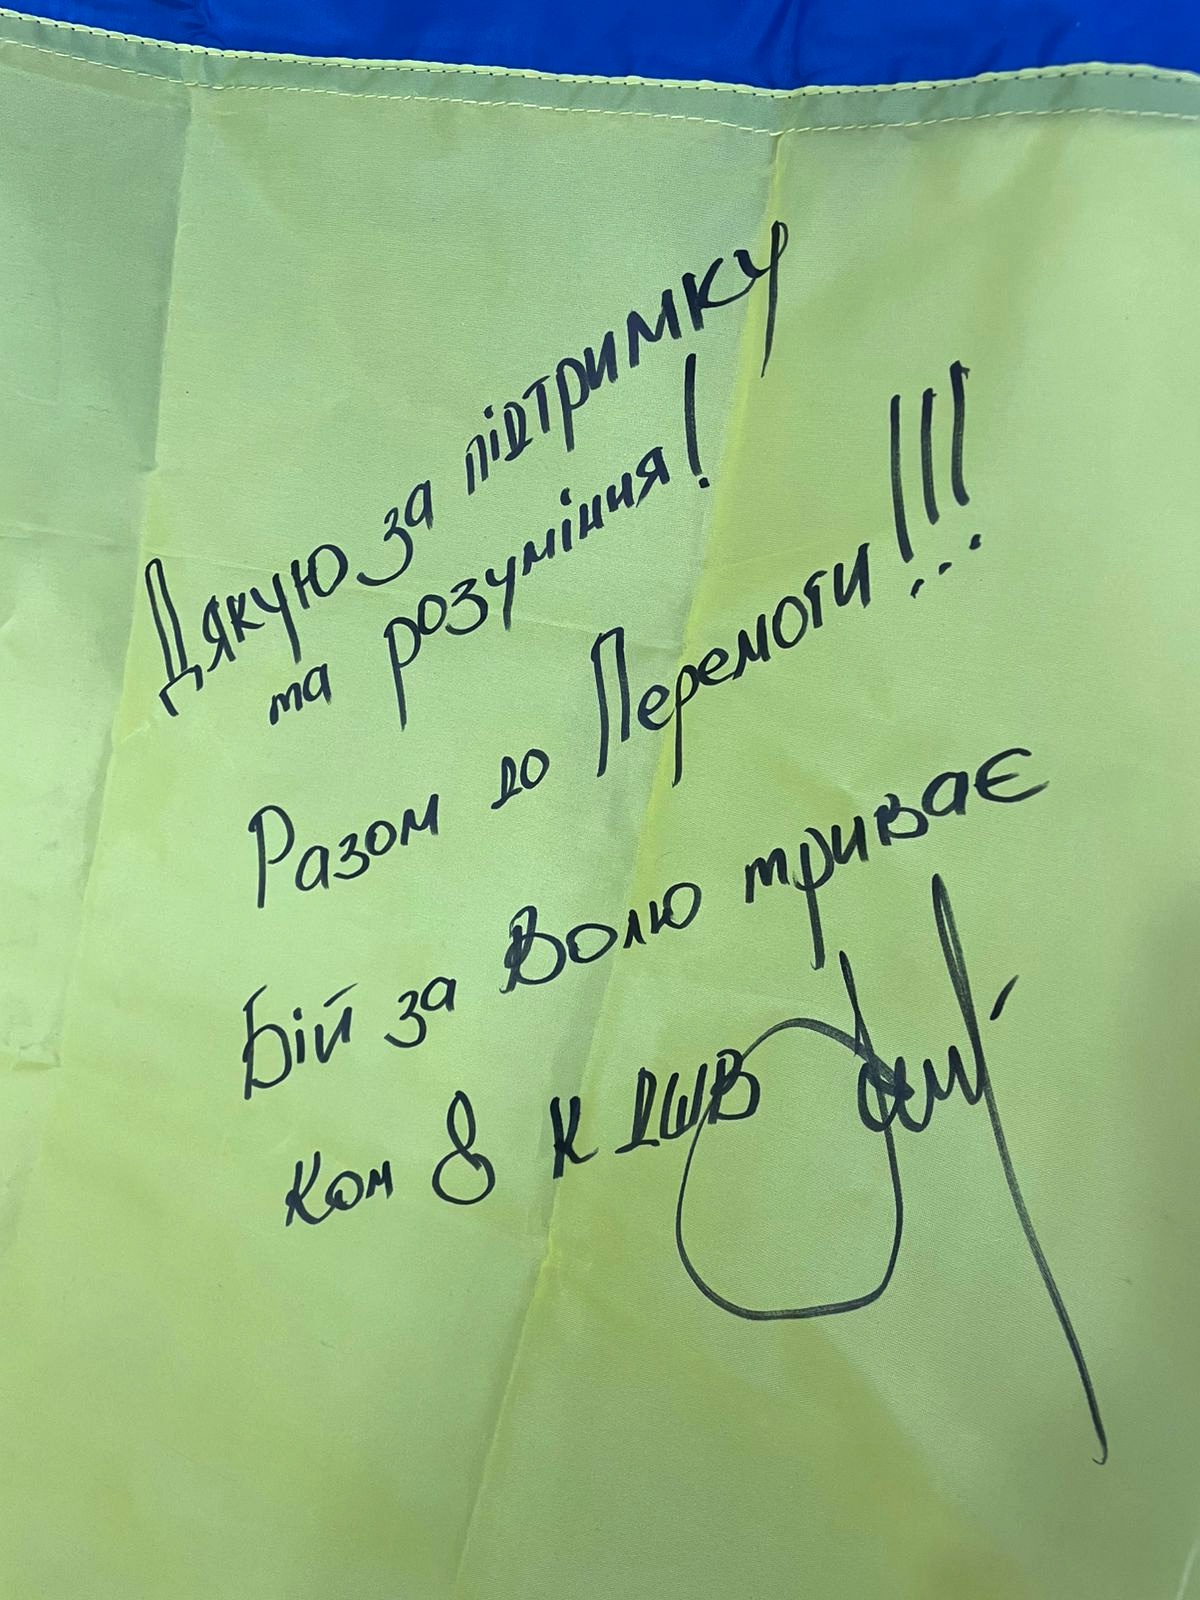 Дякую за підтримку
та розуміння!
Разом до Перемоги!!!
Бій за Волю триває
Ком 8 К ДШВ